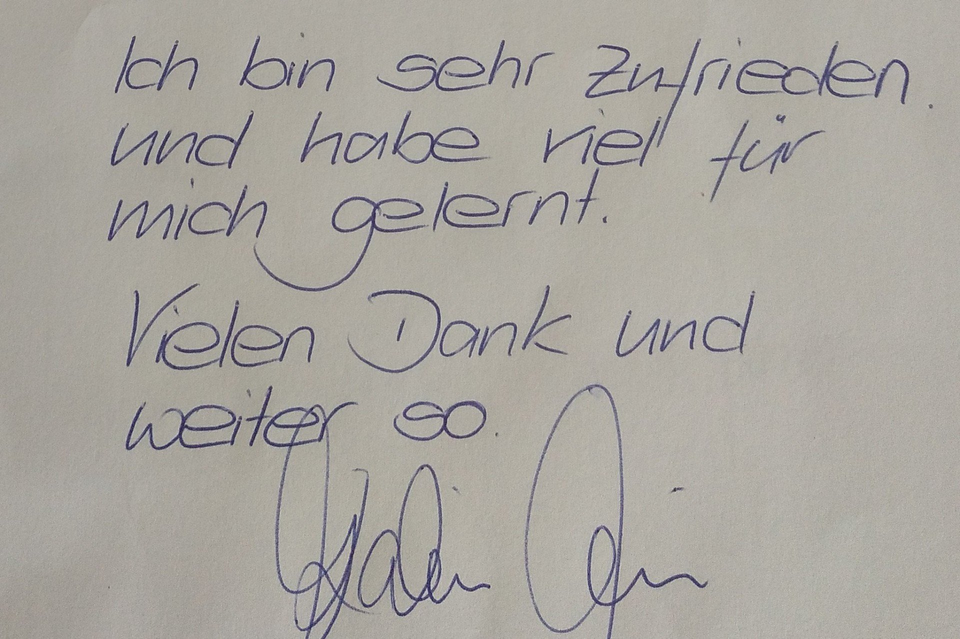 Ich bin sehr zufrieden.
und habe viel für
mich gelernt.
Vielen Dank und
weiter so.